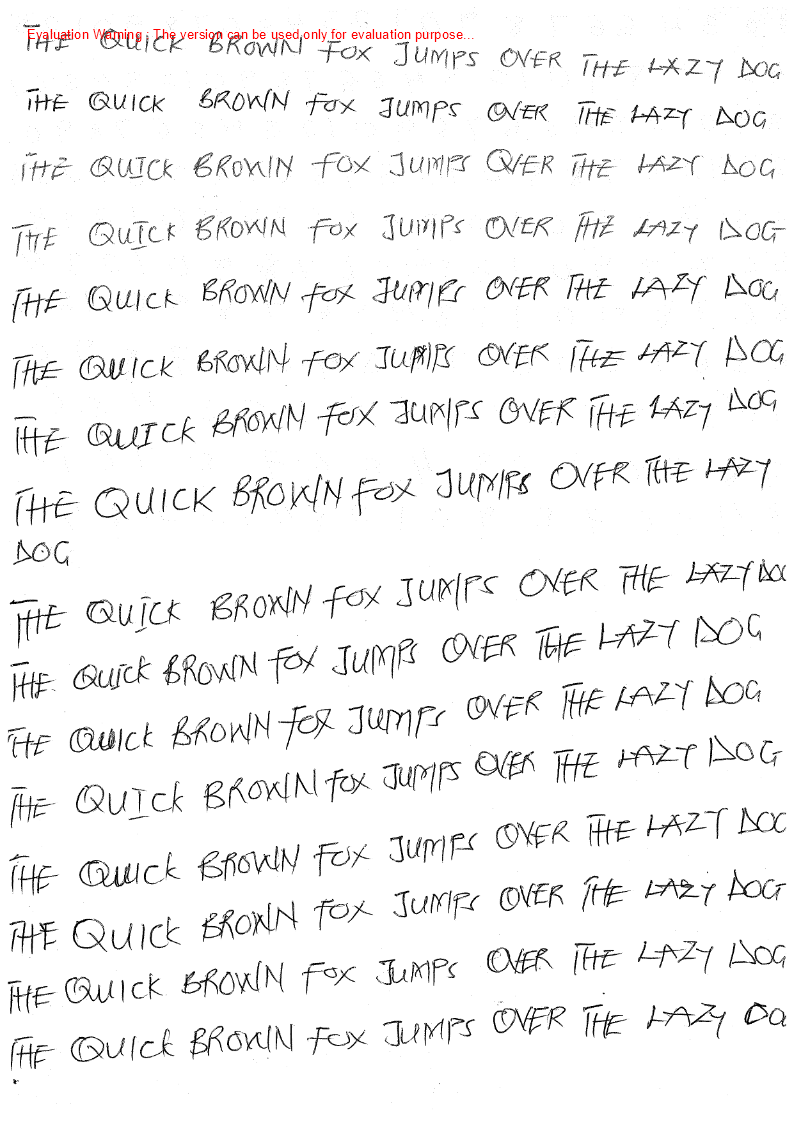 Evaluation Warning : The version can be used only for evaluation purpose...
THE QUICK BROWN FOX JUMPS OVER THE LAZY DOG
THE QUICK BROWN FOX JUMPS OVER THE LAZY DOG
THE QUICK BROWN FOX JUMPS OVER THE LAZY DOG
THE QUICK BROWN FOX JUMPS OVER THE LAZY DOG
THE QUICK BROWN FOX JUMPS OVER THE LAZY DOG
THE QUICK BROWN FOX JUMPS OVER THE LAZY DOG
THE QUICK BROWN FOX JUMPS OVER THE LAZY DOG
THE QUICK BROWN FOX JUMPS OVER THE LAZY
DOG
THE QUICK BROWN FOX JUMPS OVER THE LAZY DOG
THE QUICK BROWN FOX JUMPS OVER THE LAZY DOG
THE QUICK BROWN FOX JUMPS OVER THE LAZY DOG
THE QUICK BROWN FOX JUMPS OVER THE LAZY DOG
THE QUICK BROWN FOX JUMPS OVER THE LAZY DOG
THE QUICK BROWN FOX JUMPS OVER THE LAZY DOG
THE QUICK BROWN FOX JUMPS OVER THE LAZY DOG
THE QUICK BROWN FOX JUMPS OVER THE LAZY DO